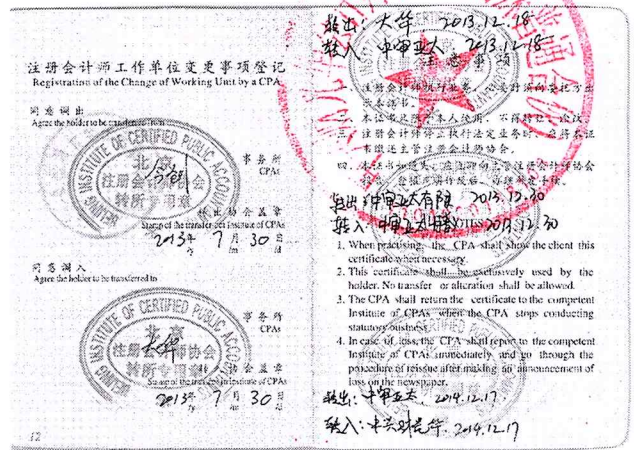 注册会计师工作单位变更事项登记
Registration of the Change of Working Unit by a CPA
同意调出
Agree the holder to be transferred from
BEIJING INSTITUTE OF CERTIFIED PUBLIC ACCOUNTANTS
北京
注册会计师协会
转所专用章
事务所
CPAs
转出协会盖章
Stamp of the transfer-out Institute of CPAs
2013年 7月 30日
同意调入
Agree the holder to be transferred to
BEIJING INSTITUTE OF CERTIFIED PUBLIC ACCOUNTANTS
北京
大华
注册会计师协会
转所专用章
事务所
CPAs
协会盖章
Stamp of the transfer-in Institute of CPAs
2013年 7月 30日
12
转出: 大华 2013.12.18
转入 中审亚太 2013.12.18
注意事项
一、注册会计师执行业务,必要时须向委托方出示本证书。
二、本证书只限于本人使用,不得转让、涂改。
三、注册会计师停止执行法定业务时,应将本证书缴还主管注册会计师协会。
四、本证书如遗失,应立即向主管注册会计师协会
转出: 中审亚太有限 2013.12.30
转入: 中审亚太 2013.12.30
1. When practising, the CPA shall show the client this
certificate when necessary.
2. This certificate shall be exclusively used by the
holder. No transfer or alteration shall be allowed.
3. The CPA shall return the certificate to the competent
Institute of CPAs when the CPA stops conducting
statutory business.
4. In case of loss, the CPA shall report to the competent
Institute of CPAs immediately and go through the
procedure of reissue after making an announcement of
loss on the newspaper.
转出: 中审亚太 2014.12.17
转入: 中兴财光华 2014.12.17